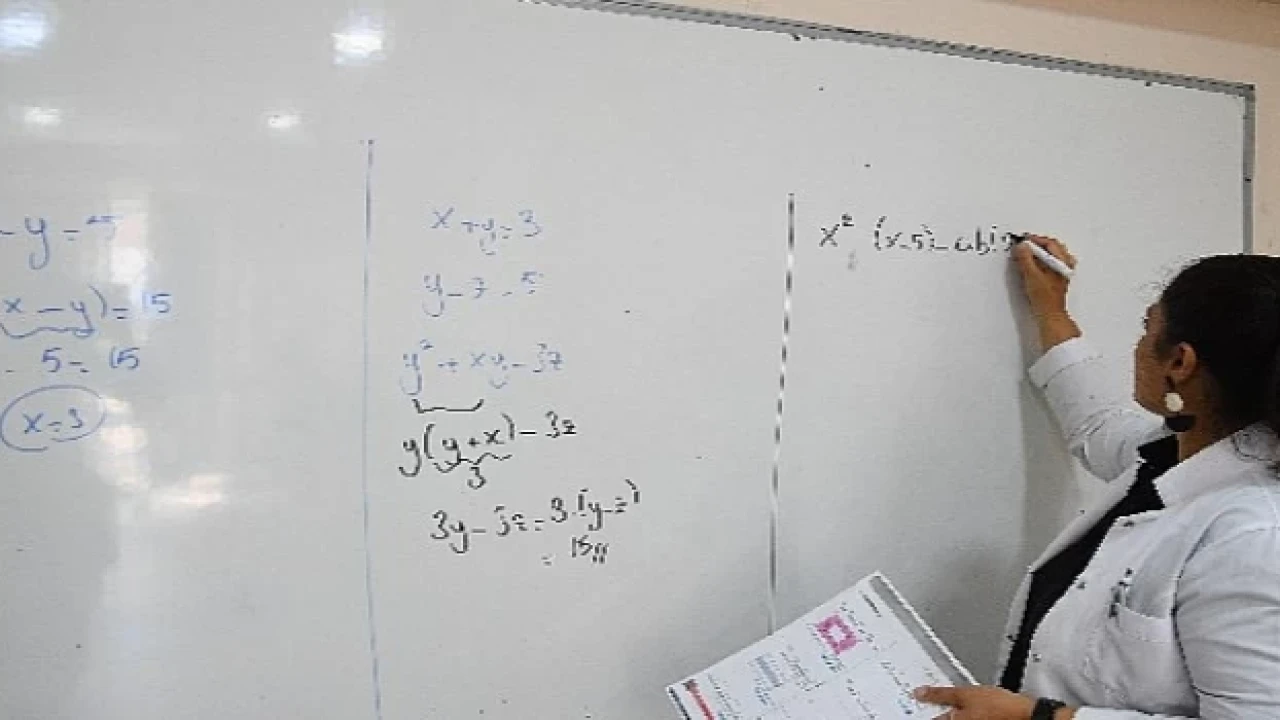 - y = 5
x - y) = 15
. 5 = 15
x = 3
x + y = 3
y - z = 5
y² + xy - 3z
y(y + x) - 3z
3
3y - 3z = 3.(y - z)
= 15
x² (x-5) - ab(